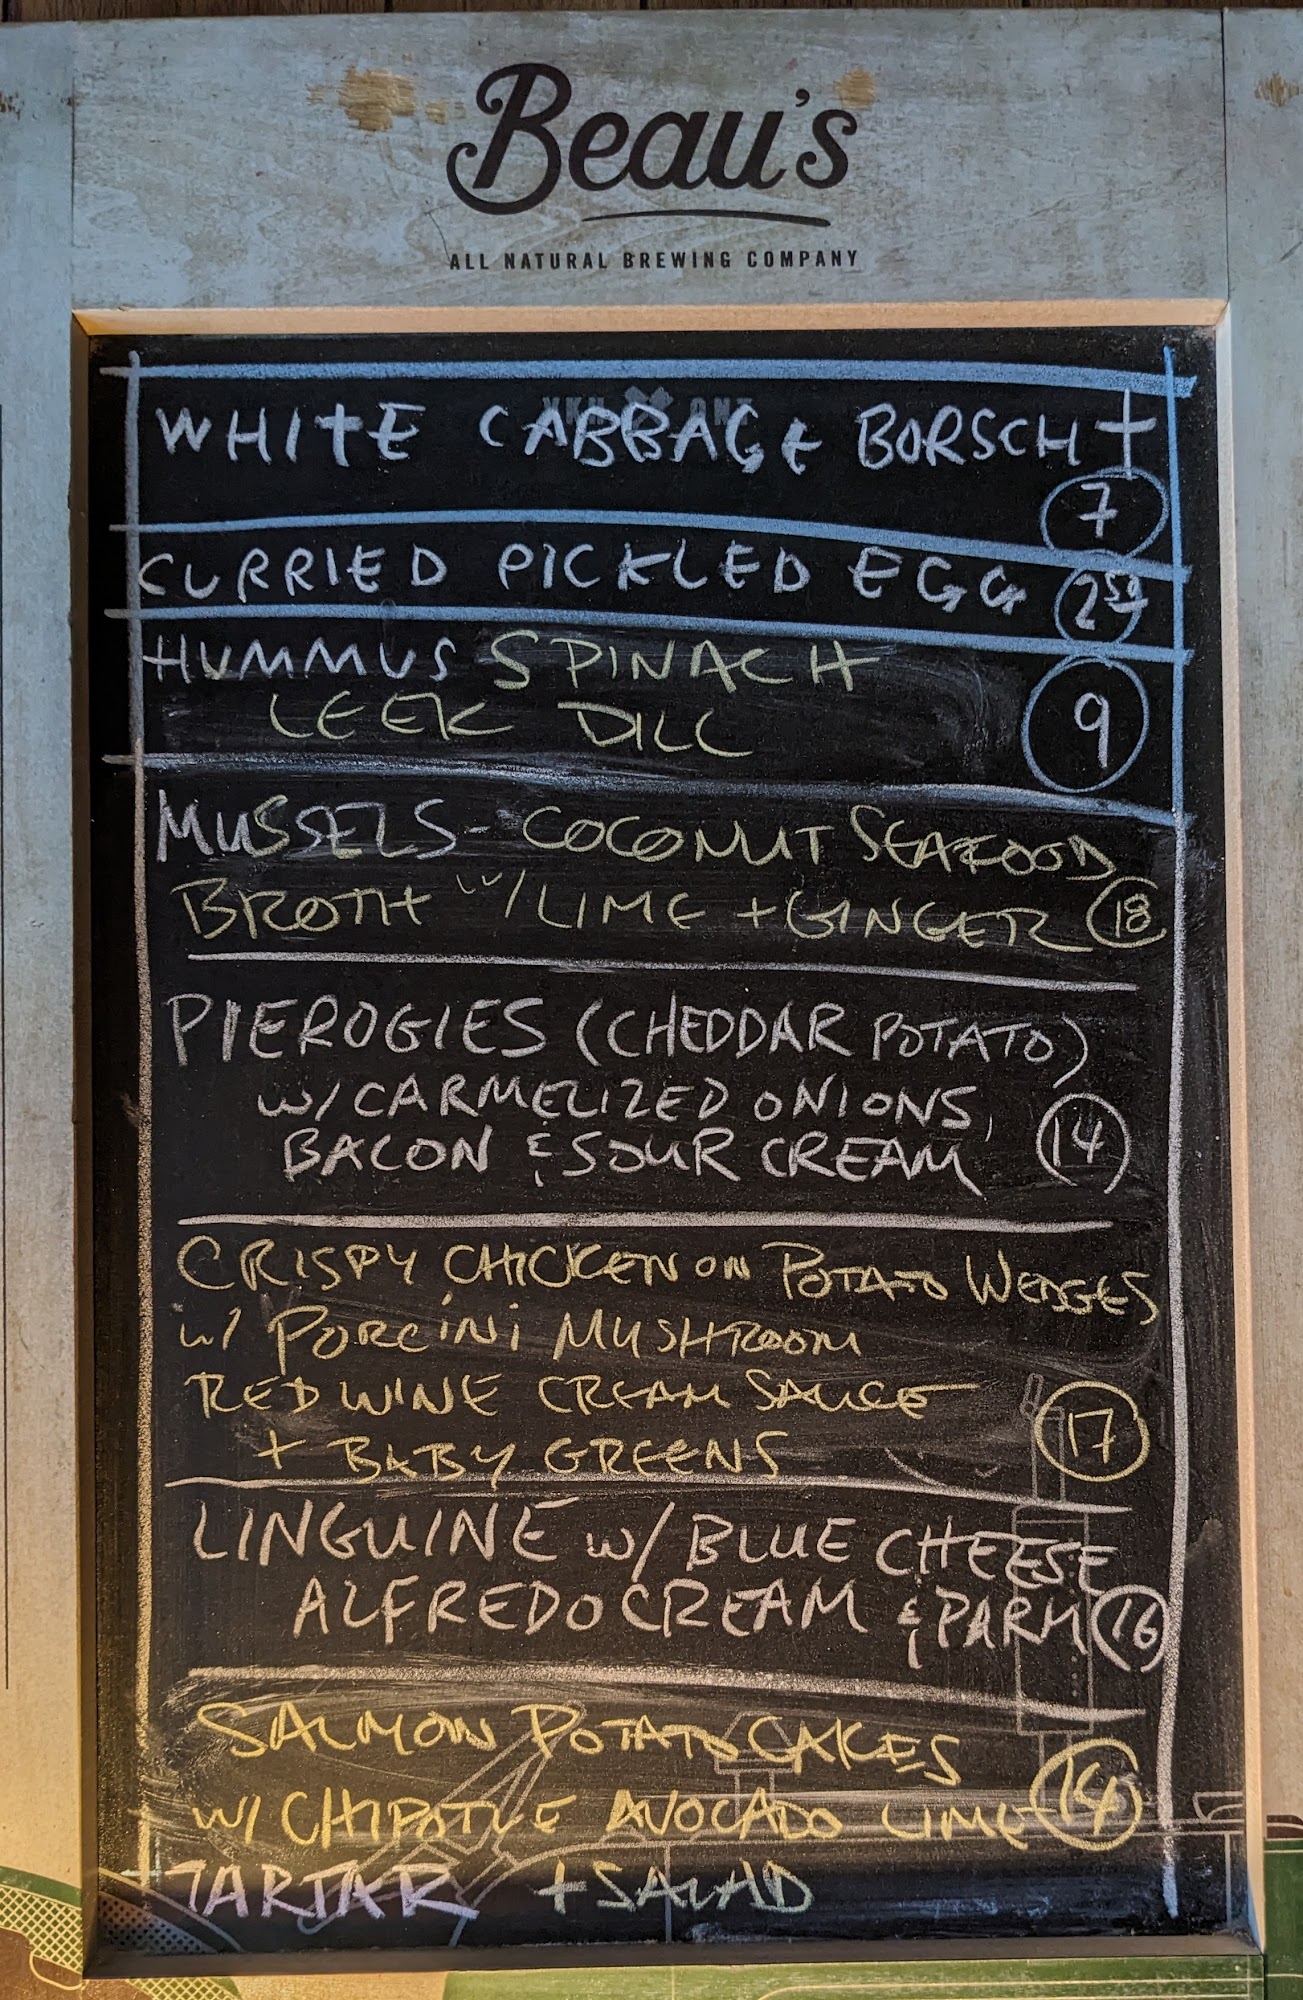 Beau's
ALL NATURAL BREWING COMPANY
WHITE CABBAGE BORSCHT
7
CURRIED PICKLED EGG 2 50
HUMMUS SPINACH
LEEK DILL
9
MUSSELS - COCONUT SEAFOOD
BROTH W/ LIME + GINGER 18
PIEROGIES (CHEDDAR POTATO)
W/ CARMELIZED ONIONS,
BACON & SOUR CREAM 14
CRISPY CHICKEN ON POTATO WEDGES
W/ PORCINI MUSHROOM
RED WINE CREAM SAUCE
17
+ BABY GREENS
LINGUINE W/ BLUE CHEESE
ALFREDO CREAM & PARM 16
SALMON POTATO CAKES
W/ CHIPOTLE AVOCADO LIME 14
TARTAR + SALAD